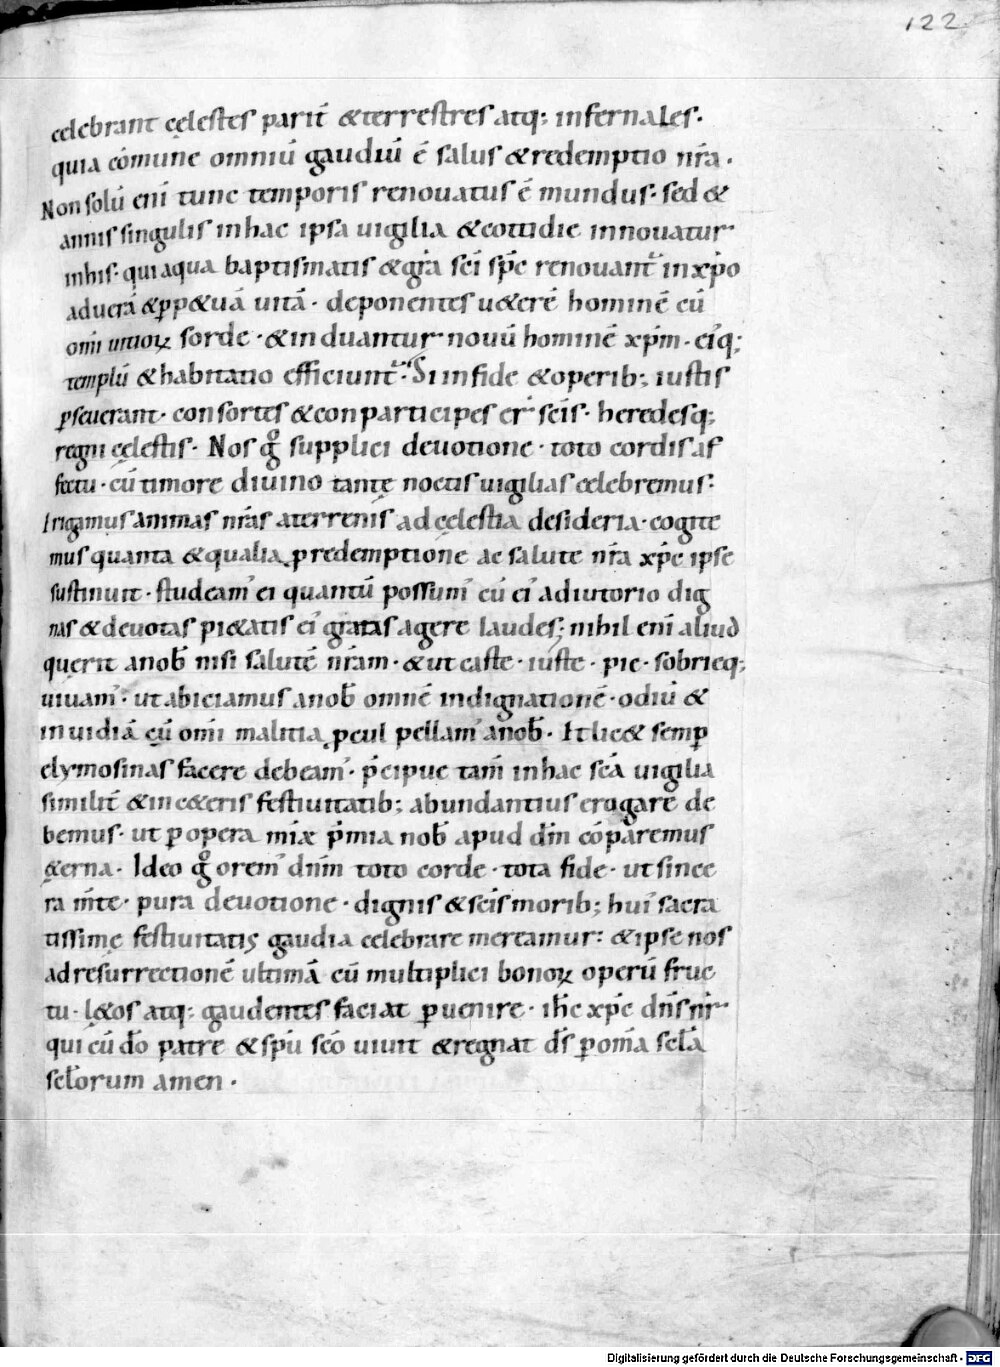 122
celebrant cęlestes parit̄ &terrestres atq; infernales.
quia cōmune omniū gaudiū ē salus &redemptio nr̄a.
Non solū enī tunc temporis renouatus ē mundus. sed &
annis singulis inhac ipsa uigilia &cottidie innouatur
inhis. qui aqua baptismatis &gr̄a sc̄i sp̄c renouant᷑ inxp̄o
aduerā &p̱p&uā uitā. deponentes u&erē hominē cū
omī uitioꝝ sorde. &induantur nouū hominē xp̄m. ei᾽q;
templū &habitatio efficiunt᷑. Si infide &operib; iustis
ꝑseuerant. consortes &conparticipes er᷑ sc̄is. heredesq;
regni cęlestis. Nos g̊ supplici deuotione. toto cordis af
fectu. cū timore diuino tantę noctis uigilias celebremus.
Irigamus animas nr̄as aterrenis ad cęlestia desideria. cogite
mus quanta &qualia ꝓ redemptione ac salute nr̄a xp̄c ipse
sustinuit. studeam᾽ ei quantū possum᾽ cū ei᾽ adiutorio dig
nas &deuotas pi&atis ei᾽ gratas agere laudes; nihil enī aliud
querit anob̄ nisi salutē nr̄am. &ut caste. iuste. pie. sobrieq;
uiuam᾽. ut abiciamus anob̄ omnē indignationē. odiū &
inuidiā cū omī malitia ꝓcul pellam᾽ anob̄. Et lic& semꝑ
elymosinas facere debeam᾽. p̄cipue tam̄ inhac sc̄a uigilia
similit̄ &inc&eris festiuitatib; abundantius erogare de
bemus. ut ꝑ opera mīę p̄mia nob̄ apud dm̄ cōparemus
&erna. Ideo g̊ orem᾽ dnm̄ toto corde. tota fide. ut since
ra m̄te. pura deuotione. dignis &sc̄is morib; hui᾽ sacra
tissimę festiuitatis gaudia celebrare mereamur: &ipse nos
ad resurrectionē ultimā cū multiplici bonoꝝ operū fruc
tu. l&os atq; gaudentes faciat ꝑuenire. ih̄c xp̄c dn̄s nr̄
qui cū do̅ patre &sp̄u sc̄o uiuit &regnat ds̄ ꝑ om̄a sc̄la
sc̄lorum amen.
Digitalisierung gefördert durch die Deutsche Forschungsgemeinschaft - DFG